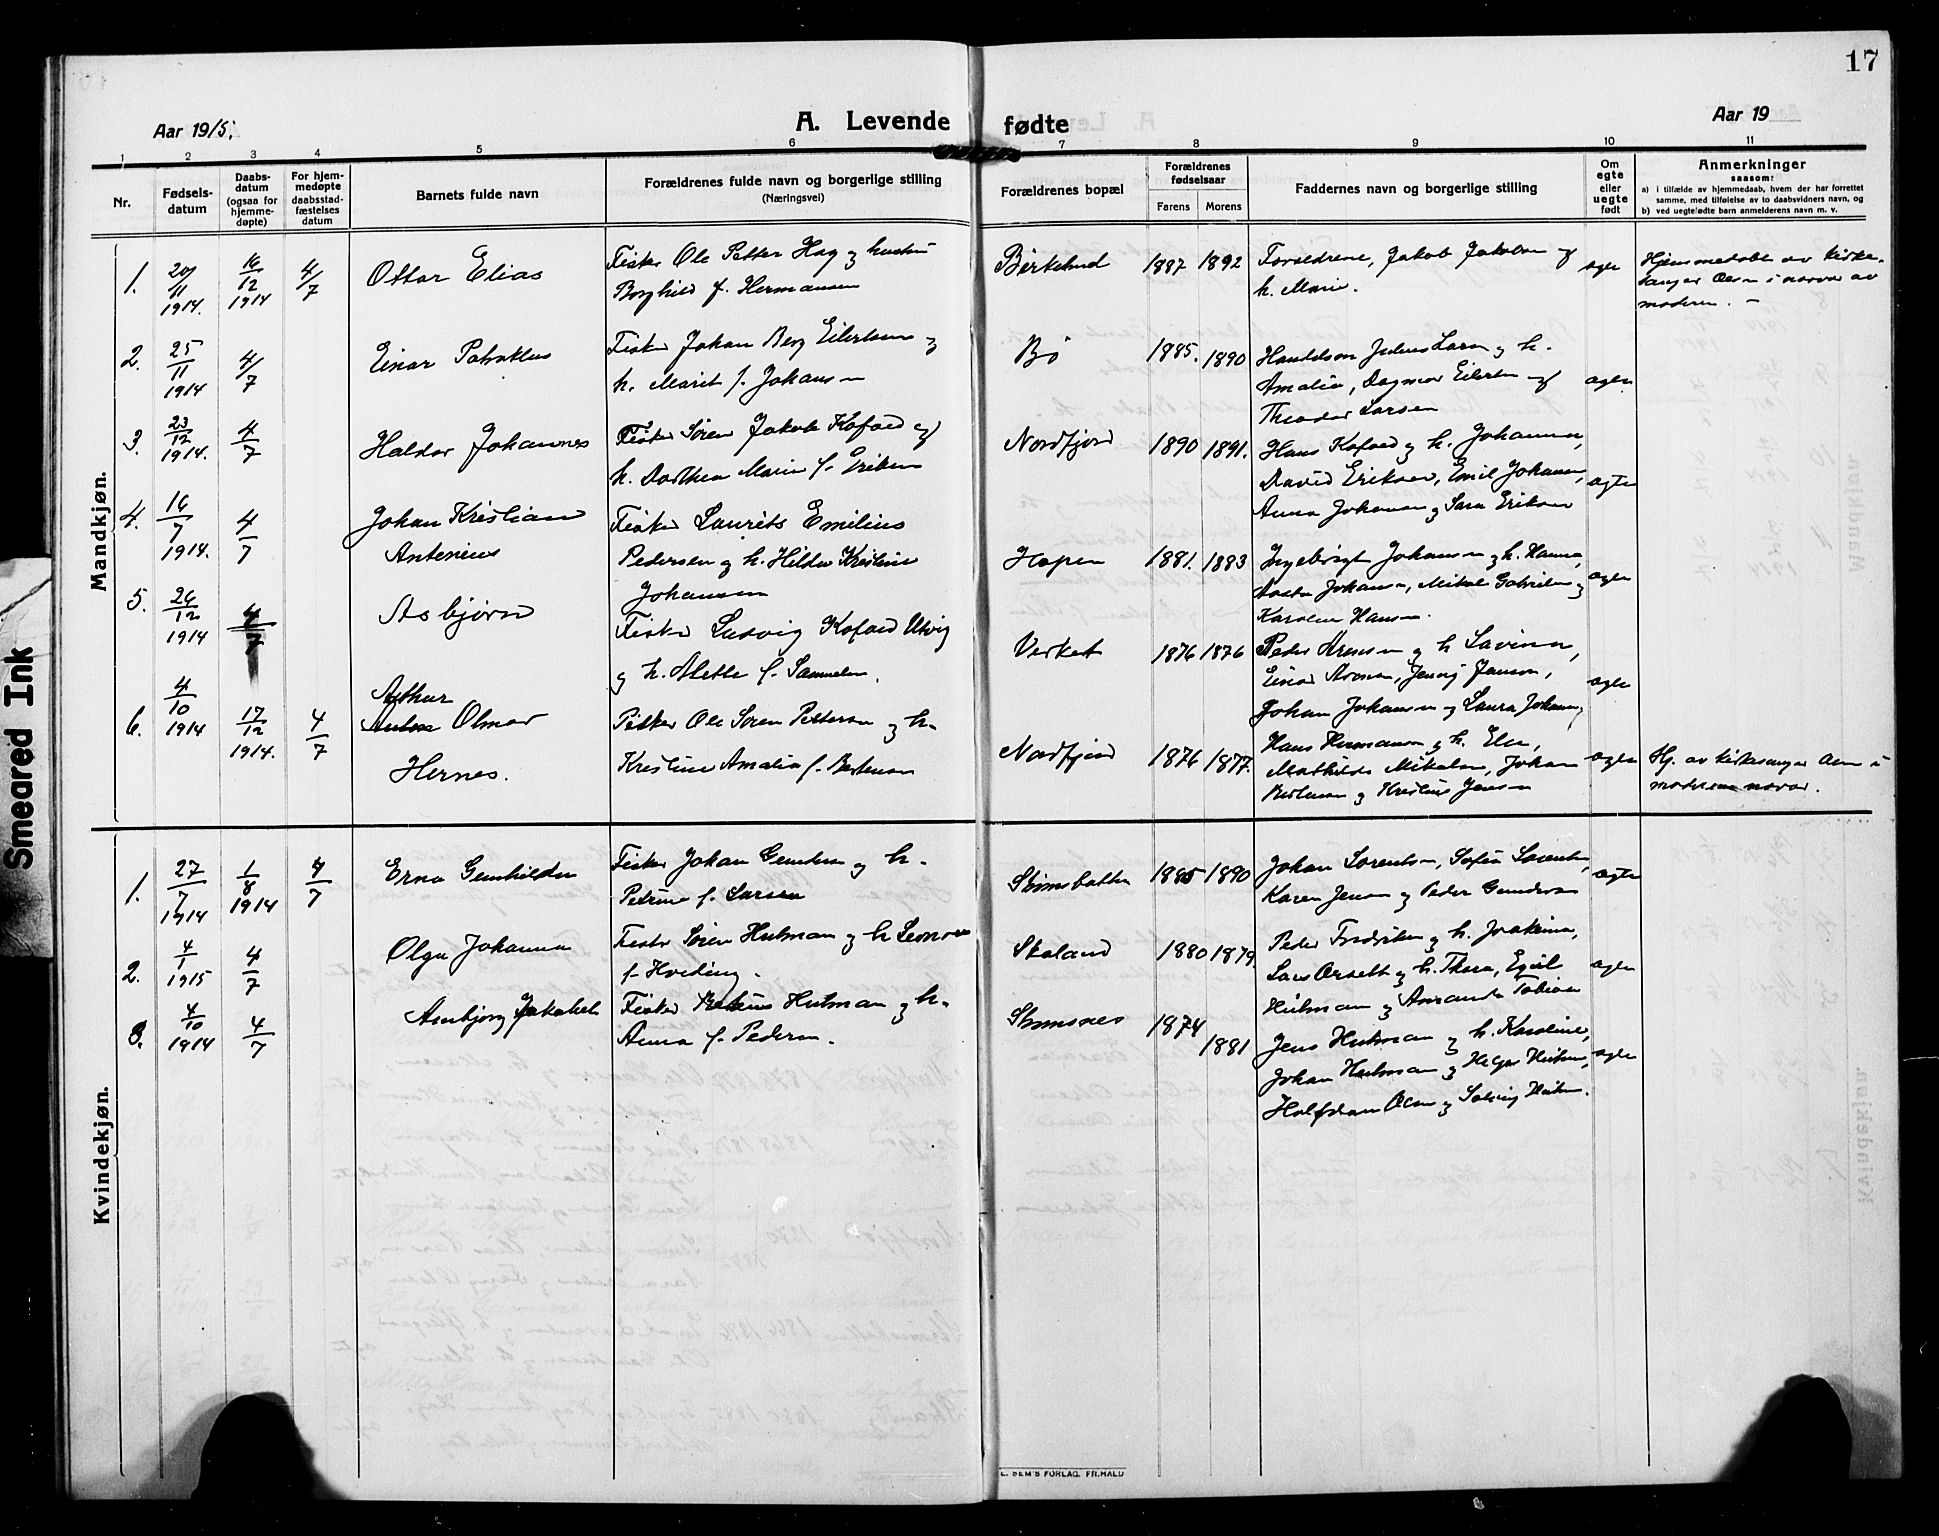 17
Aar 1915.
A. Levende fødte
Aar 19
1 2 3 4 5 6 7 8 9 10 11
Nr.
Fødsels-
datum
Daabs-
datum
(ogsaa for
hjemme-
døpte)
For hjem-
medøpte
daabsstad-
fæstelses
datum
Barnets fulde navn
Forældrenes fulde navn og borgerlige stilling
(Næringsvei)
Forældrenes bopæl
Forældrenes
fødselsaar
Farens Morens
Faddernes navn og borgerlige stilling
Om
egte
eller
uegte
født
Anmerkninger
saasom:
a) i tilfælde av hjemmedaab, hvem der har forrettet
samme, med tilføielse av to daabsvidners navn, og
b) ved uegtefødte barn anmelderens navn m. v.
Mandkjøn.
1. 20/11 1914. 16/12 1914 4/7
Ottar Elias
Fisker Ole Petter Hag og hustru
Borghild f. Hermansen
Birkelund
1887 1892
Forældrene, Jakob Jakobsen og
h. Marie.
Hjemmedøbt av kirke-
sanger Olsen i nærvær av
moderen. –
2. 25/11 1914 4/7
Einar
Fisker Johan Berg Eilertsen og
h. Marit f. Johansen
Bø
1885. 1890
Larsen og h.
Amalie, Dagmar Eilertsen og
Theodor Larsen
3. 23/12 1914. 4/7
Haldor Johannes
Fisker Søren Jakob Kofoed og
h. Dorthea Marie f. Eriksen
Nordfjord
1890 1891.
Hans Kofoed og h. Johanna,
David Eriksen, Emil Johansen,
Anna Johansen og Sara Eriksen
ægte
4. 16/7 1914. 4/7
Johan Kristian
Antonius
Fisker Laurits Emilius
Pedersen og h. Hilda Kristine
Johansen
Hopen
1881. 1883
Ingebrigt Johansen og h. Hanna,
Johansen, Mikal Gabrielsen og
Karoline Hansen.
5. 26/12 1914 4/7
Asbjørn
Fisker Ludvig Kofoed Utvig
og h. Mette f. Samuelsen.
Verket
1876 1876
Peder Arnesen og h. Lavina,
Einar Arnesen, Jenny Jansen,
Johan Johansen og Laura Johansen
6. 4/10 1914 17/12 1914. 4/7
Arthur
Olmar
Hernes.
Fisker Ole Søren Petersen og h.
Kristine Amalia f. Bertensen
Nordfjord
1876 1877.
Hans Hermansen og h. Else,
Mathilde Mikalsen, Johan
Bertensen og Kristine Jensen
Hj. av kirkesanger Olsen i
moderens nærvær.
Kvindekjøn.
1. 27/7 1914 1/8 1914 4/7
Erna Gunhilda
Fisker Johan Gundersen og h.
Petrine f. Larsen
1885 1890
Johan Lorentsen, Sofie Lorentsen,
Karen Jensen og Peder Gundersen
ægte
2. 4/1 1915 4/7
Olga Johanna
Fisker Søren Hutman og h. Leonore
f. Hveding.
Skaland
1880 1879.
Peder Fredriksen og h. Joakima,
Lars Orsett og h. Thora, Egil
Hutman og Amanda Tobiasen
3. 4/10 1914 4/7
Fisker Hutman og h.
Anna f. Pedersen.
Skimsnes
1874 1881
Jens Hutman og h. Karoline,
Johan Hutman og Helga Hutman,
Halfdan Olsen og Solveig
Smeared Ink
E. SEM'S FORLAG, FR.HALD